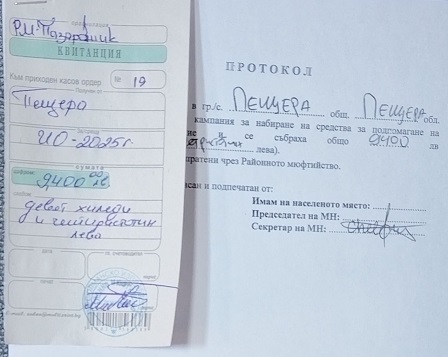 Р.М. Пазарджик
КВИТАНЦИЯ
Към приходен касов ордер № 19
Пещера
ЦО-2025г.
сума
9400 00 лв
девет хиляди
и четиристотин
лева
ПРОТОКОЛ
в гр./с. ПЕЩЕРА общ. ПЕЩЕРА обл.
кампания за набиране на средства за подпомагане на
се събраха общо 9400 лв
лева).
пратени чрез Районното мюфтийство.
сан и подпечатан от:
Имам на населеното място:
Председател на МН:
Секретар на МН: